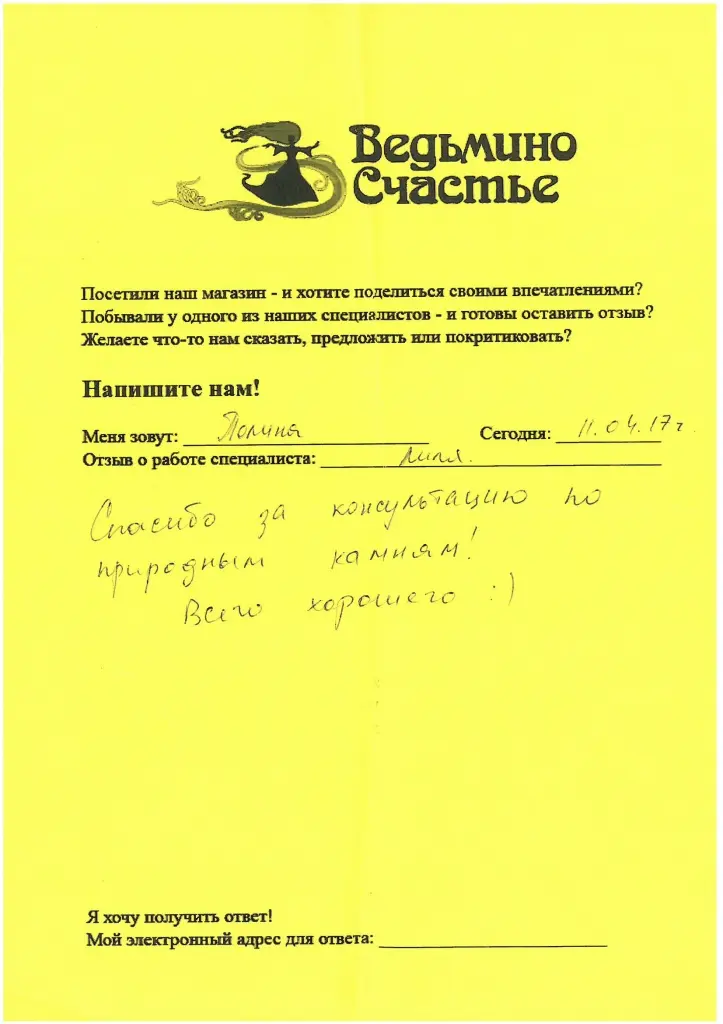 Ведьмино
Счастье
Посетили наш магазин - и хотите поделиться своими впечатлениями?
Побывали у одного из наших специалистов - и готовы оставить отзыв?
Желаете что-то нам сказать, предложить или покритиковать?
Напишите нам!
Меня зовут: Полина Сегодня: 11.04.17г.
Отзыв о работе специалиста: Лиля.
Спасибо за консультацию по
природным камням!
Всего хорошего :)
Я хочу получить ответ!
Мой электронный адрес для ответа: